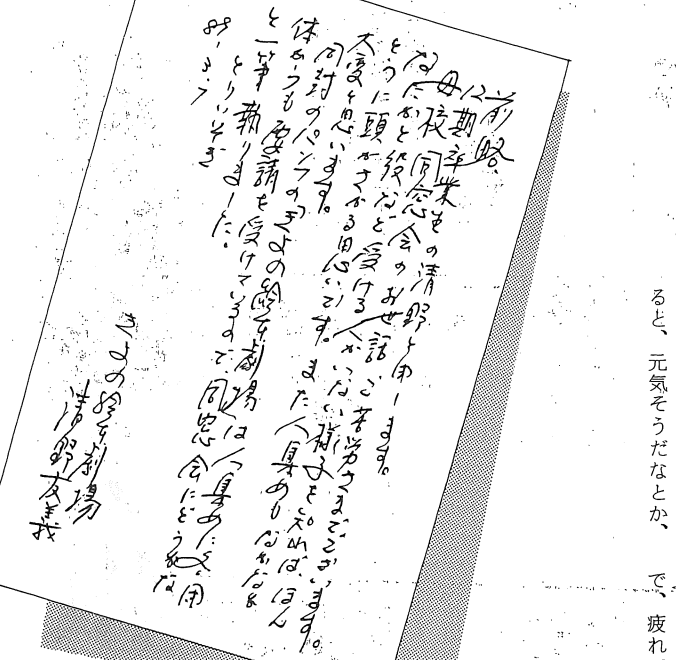 ると、元気そうだなとか、
で、疲れ
前略、
12期卒業生の清野と申します。
母校同窓会のお世話ご苦労さまでございます。
なにかと役など受ける人がいない様子を知れば、ほん
とうに頭がさがる思いです。また人集めもなかなか
大変と思います。
同封のパンフのきよの鈴本劇場は人集めに各団
体からも要請を受けているので、同窓会にどうかな
と一筆執りました。
とりいそぎ
89.3.7
きよの鈴本劇場
清野友義